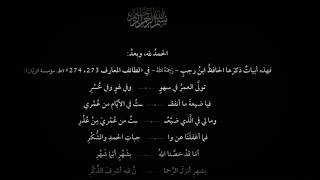 الحمدُ لله، وبعدُ:
فهذه أبياتٌ ذكرَها الحافظُ ابنُ رجبٍ – رَحِمَهُ اللهُ – في «لطائف المعارف 273، 274» (ط. مؤسسة الريّان)
تولَّى العمرُ في سهوٍ وفي لهوٍ وفي خُسْرِ
فيا ضيعةَ ما أنفقـ ـتُ في الأيّامِ من عُمْري
وما لي في الَّذي ضيَّعـ ـتُ من عمريَ من عُذْرِ
فما أغفلَنا عن وا جباتِ الحمدِ والشُّكْرِ
أما قد خصَّنا اللهُ بشهرٍ أيّما شهرِ
بشهرٍ أنزلَ الرَّحما نُ فيه أشرفَ الذِّكْرِ